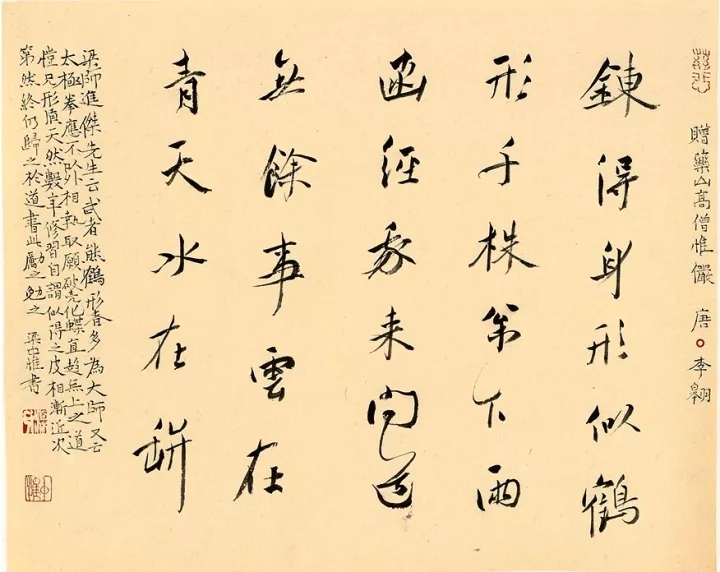 贈藥山高僧惟儼 唐 李翱
鍊得身形似鶴
形千株枀下兩
函經我来問道
無餘事雲在
青天水在缾
梁師進傑先生云武者熊鶴形者多為大師又云
太極拳應不以外相執取願破壳化蝶直趍無上之道
兄形質天然數年修習自謂似得之皮相漸近次
第然終仍歸之於道書此勵之勉之 梁惟書